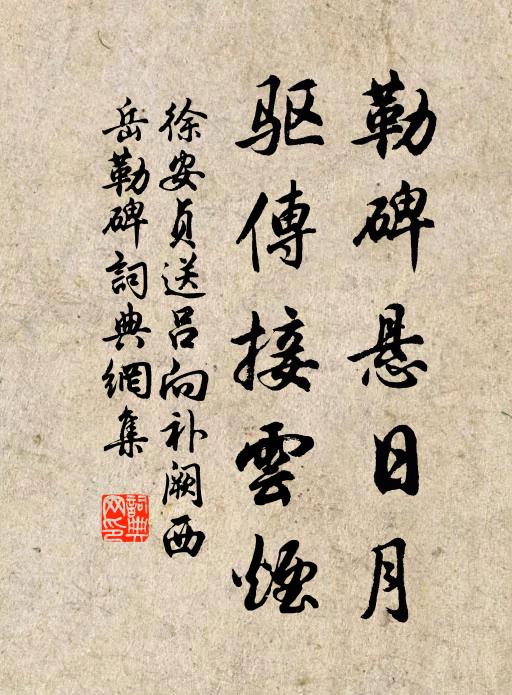 勒碑悬日月
驱傳接雲煙
徐安贞送吕向补阙西
岳勒碑詞典網集
詞典网印